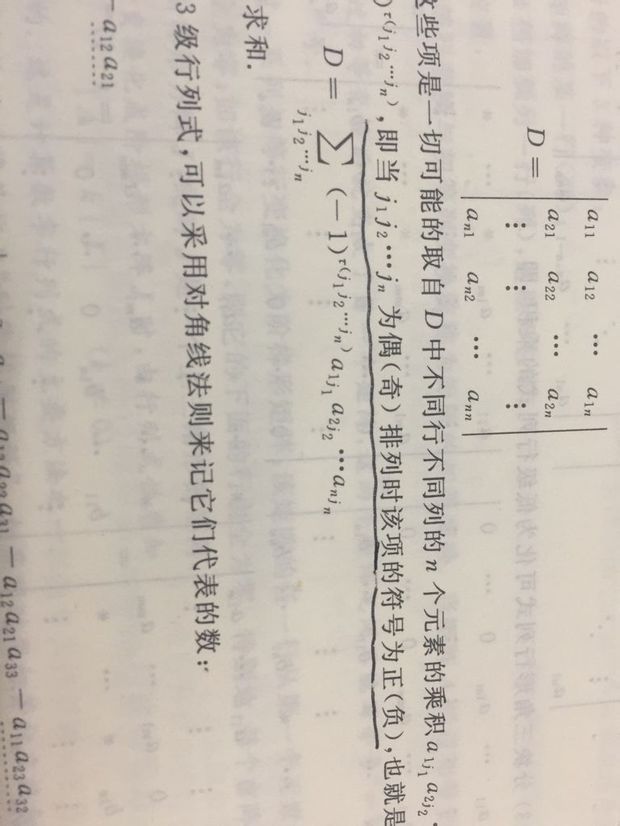 D =
a11 a12 ⋯ a1n
a21 a22 ⋯ a2n
⋮ ⋮ ⋮
an1 an2 ⋯ ann
这些项是一切可能的取自 D 中不同行不同列的 n 个元素的乘积 a1j1 a2j2
)^τ(j1 j2⋯jn), 即当 j1 j2⋯jn 为偶(奇)排列时该项的符号为正(负),也就是
D = ∑ j1 j2⋯jn (−1)^τ(j1 j2⋯jn) a1j1 a2j2 ⋯ anjn
求和.
3 级行列式,可以采用对角线法则来记它们代表的数:
− a12 a21
− a12 a21 a33 − a11 a23 a32